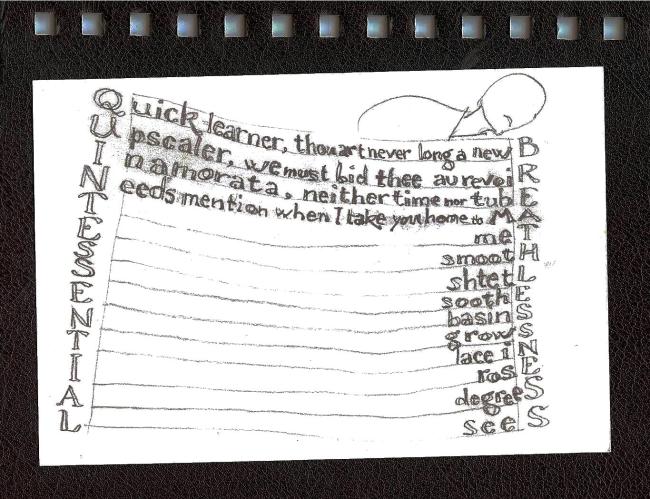 Quick learner, thou art never long a new B
Upscaler, we must bid thee au revoi R
Inamorata, neither time nor tub E
Needs mention when I take you home to M A
T me T
E smoot H
S shtet L
S sooth E
E basin S
N grow S
T lace i N
I ros E
A degree S
L see S